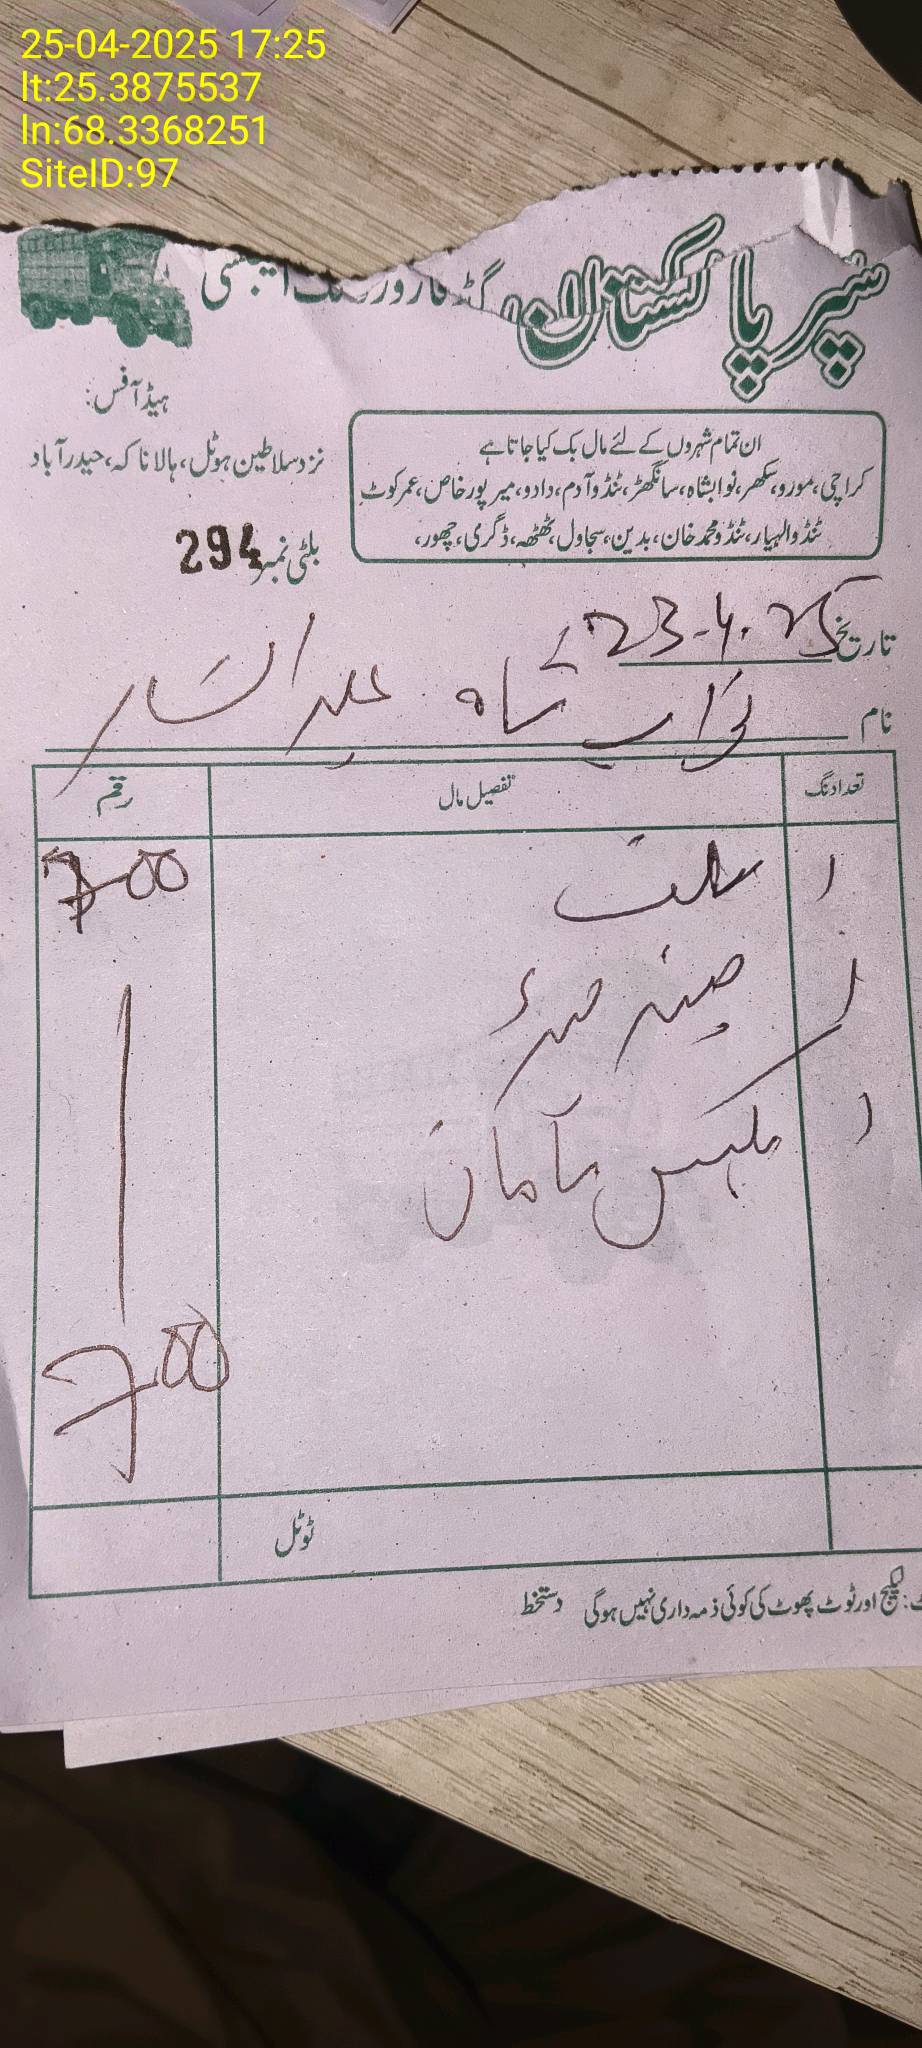 25-04-2025 17:25
lt:25.3875537
ln:68.3368251
SiteID:97
سپر پاکستان گڈز فارورڈنگ ایجنسی
ہیڈ آفس:
نزد سلاطین ہوٹل، ہالا ناکہ، حیدرآباد
ان تمام شہروں کے لئے مال بک کیا جاتا ہے
کراچی، مورو، سکھر، نوابشاہ، سانگھڑ، ٹنڈو آدم، دادو، میرپور خاص، عمرکوٹ
ٹنڈوالہیار، ٹنڈو محمد خان، بدین، سجاول، ٹھٹھہ، ڈگری، چھور،
بلٹی نمبر 294
تاریخ 23-4-25
نام نواب شاہ عبدالستار
تعداد نگ تفصیل مال رقم
1 700
1
1 مکس سامان
700
ٹوٹل
لیکج اور ٹوٹ پھوٹ کی کوئی ذمہ داری نہیں ہوگی دستخط